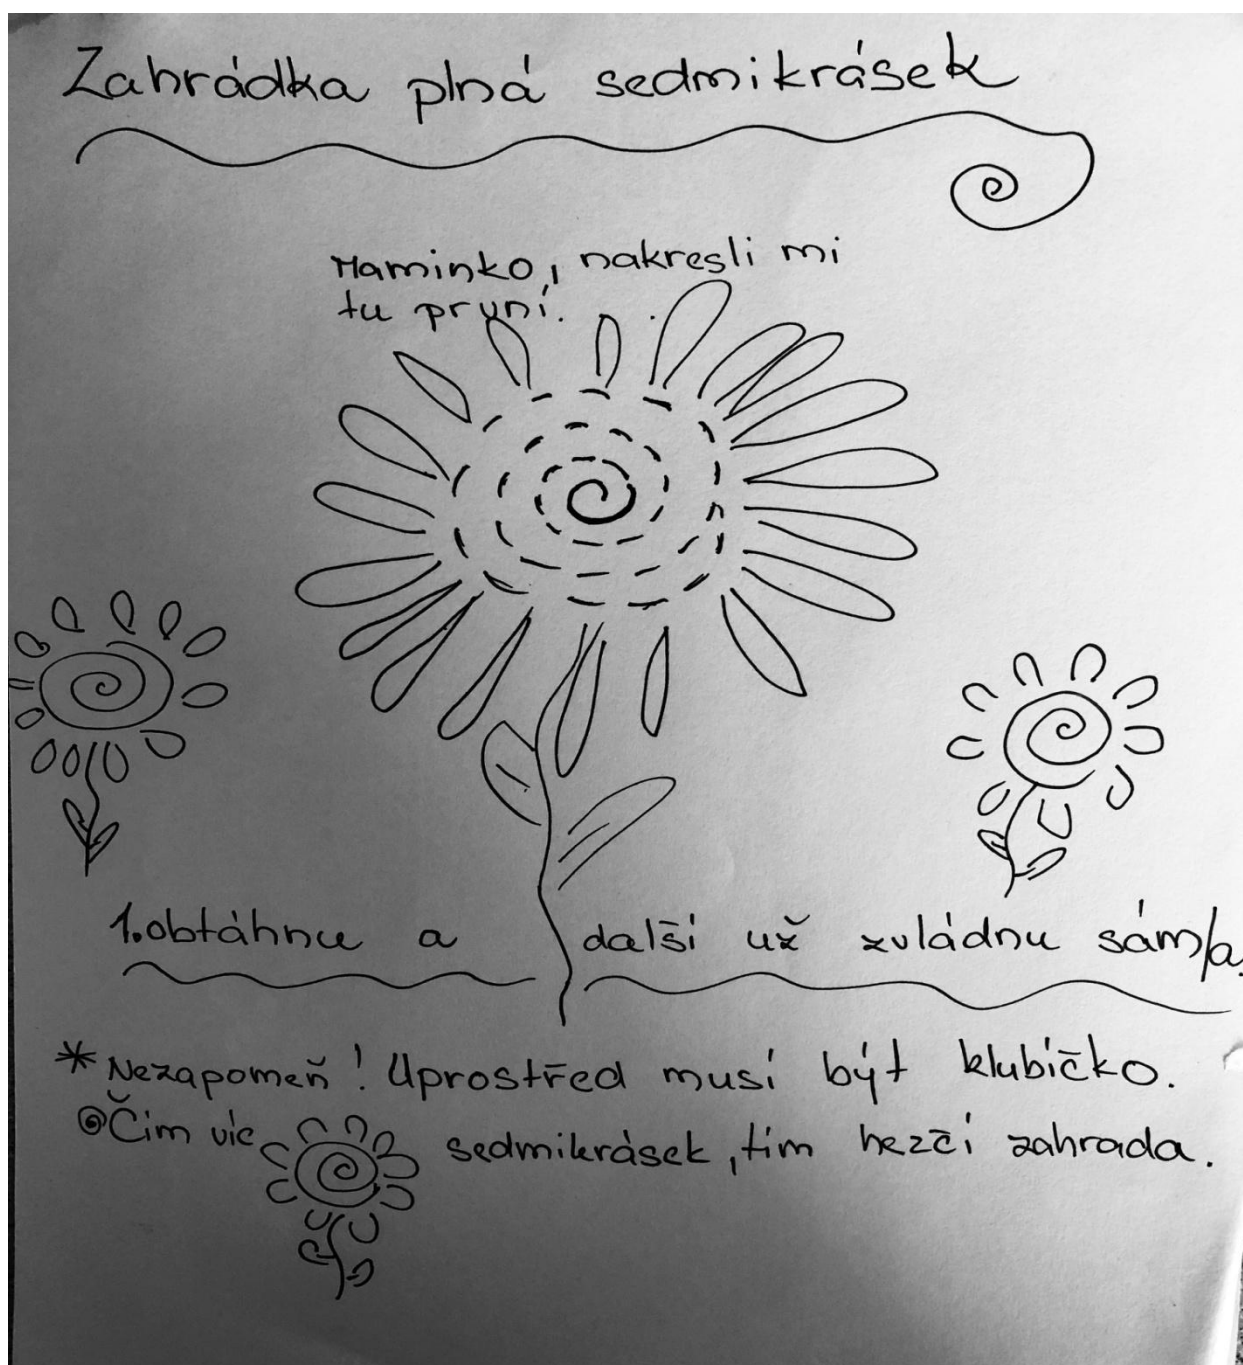 Zahrádka plná sedmikrásek
Maminko, nakresli mi
tu první.
1. obtáhnu a další už zvládnu sám/a.
* Nezapomeň! Uprostřed musí být klubíčko.
Čím víc sedmikrásek, tím hezčí zahrada.